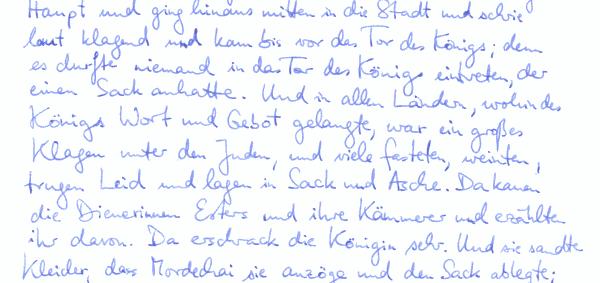 Haupt und ging hinaus mitten in die Stadt und schrie
laut klagend und kam bis vor das Tor des Königs; denn
es durfte niemand in das Tor des Königs eintreten, der
einen Sack anhatte. Und in allen Ländern, wohin des
Königs Wort und Gebot gelangte, war ein großes
Klagen unter den Juden, und viele fasteten, weinten,
trugen Leid und lagen in Sack und Asche. Da kamen
die Dienerinnen Esters und ihre Kämmerer und erzählten
ihr davon. Da erschrack die Königin sehr. Und sie sandte
Kleider, dass Mordechai sie anzöge und den Sack ablegte;